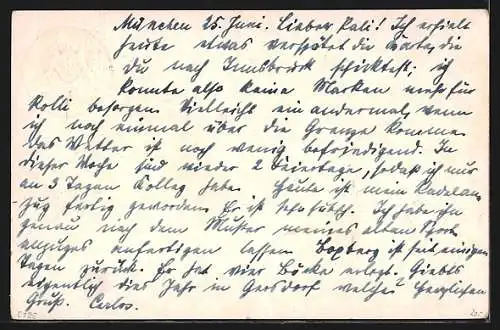 München 25. Juni. Lieber Kali! Ich erhielt
heute etwas verspätet die Karte, die
du nach Innsbruck schicktest; ich
konnte also keine Marken mehr für
Kolli besorgen. Vielleicht ein andermal, wenn
ich noch einmal über die Grenze komme.
Das Wetter ist noch wenig befriedigend. In
dieser Woche sind wieder 2 Feiertage, sodaß ich nur
an 3 Tagen Kolleg habe. Heute ist mein Radelan-
zug fertig geworden. Er ist sehr hübsch. Ich habe ihn
genau nach dem Muster meines alten Sport-
anzuges anfertigen lassen. ist seit einigen
Tagen zurück. Er hat vier Böcke erlegt. Giebts
eigentlich dies Jahr in Gersdorf welche? Herzlichen
Gruß. Carlos.